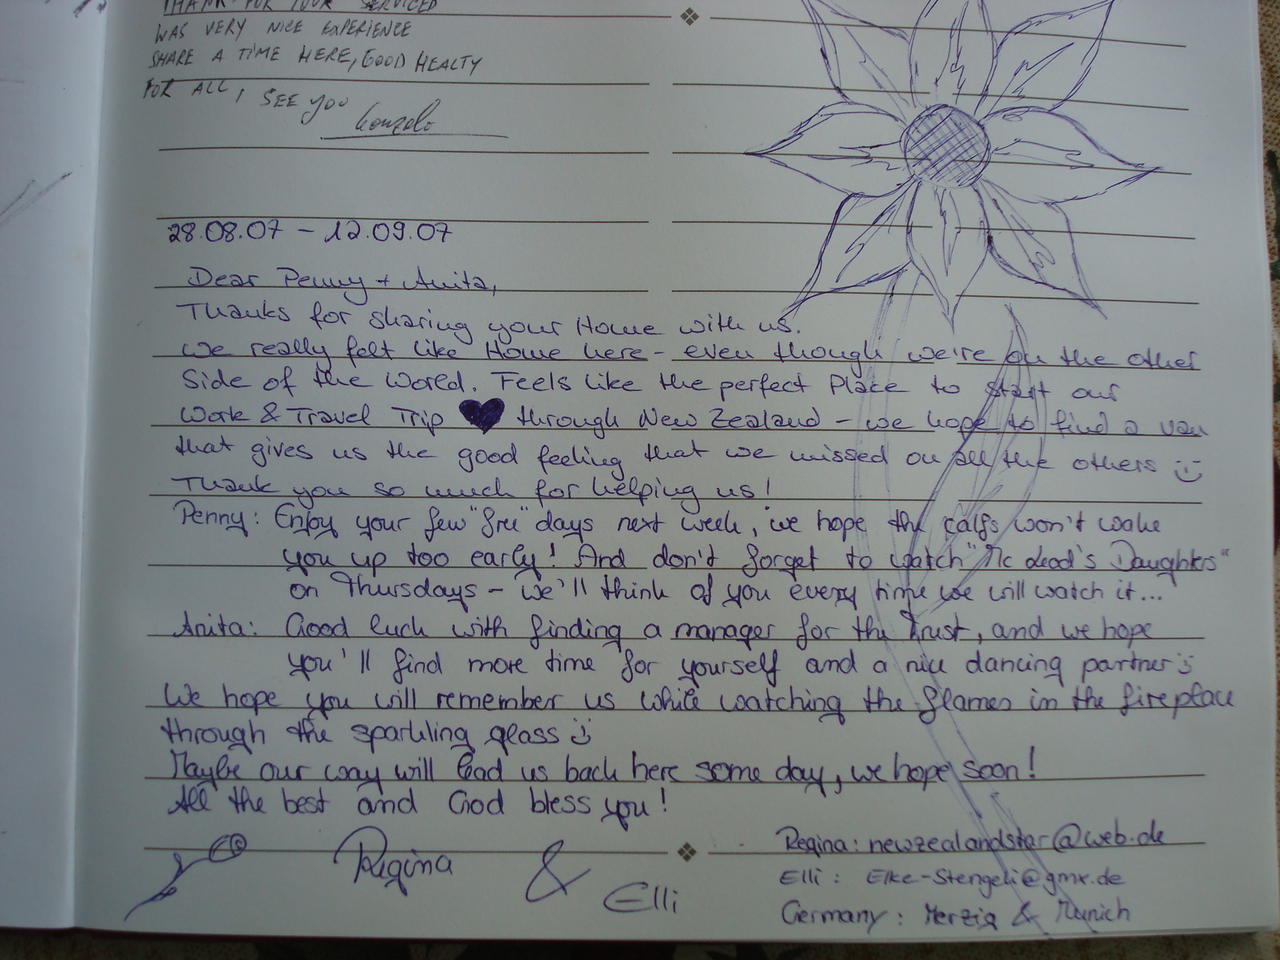 THANK FOR YOUR SERVICED
WAS VERY NICE EXPERIENCE
SHARE A TIME HERE, GOOD HEALTY
FOR ALL, I SEE YOU
Gonzalo
28.08.07 - 12.09.07
Dear Penny + Anita,
Thanks for sharing your Home with us.
We really felt like Home here - even though we're on the other
Side of the World. Feels like the perfect Place to start our
Work & Travel Trip ♥ through New Zealand - we hope to find a van
that gives us the good feeling that we missed on all the others :)
Thank you so much for helping us!
Penny: Enjoy your few "free" days next week, we hope the calfs won't wake
you up too early! And don't forget to watch "Mc Lead's Daughters"
on Thursdays - we'll think of you every time we will watch it...
Anita: Good luck with finding a manager for the Trust, and we hope
you'll find more time for yourself and a nice dancing partner :)
We hope you will remember us while watching the flames in the fireplace
through the sparkling glass :)
Maybe our way will lead us back here some day, we hope soon!
All the best and God bless you!
Regina & Elli
Regina: newzealandstar@web.de
Elli: Elke-Stengeli@gmx.de
Germany: Merzig & Munich